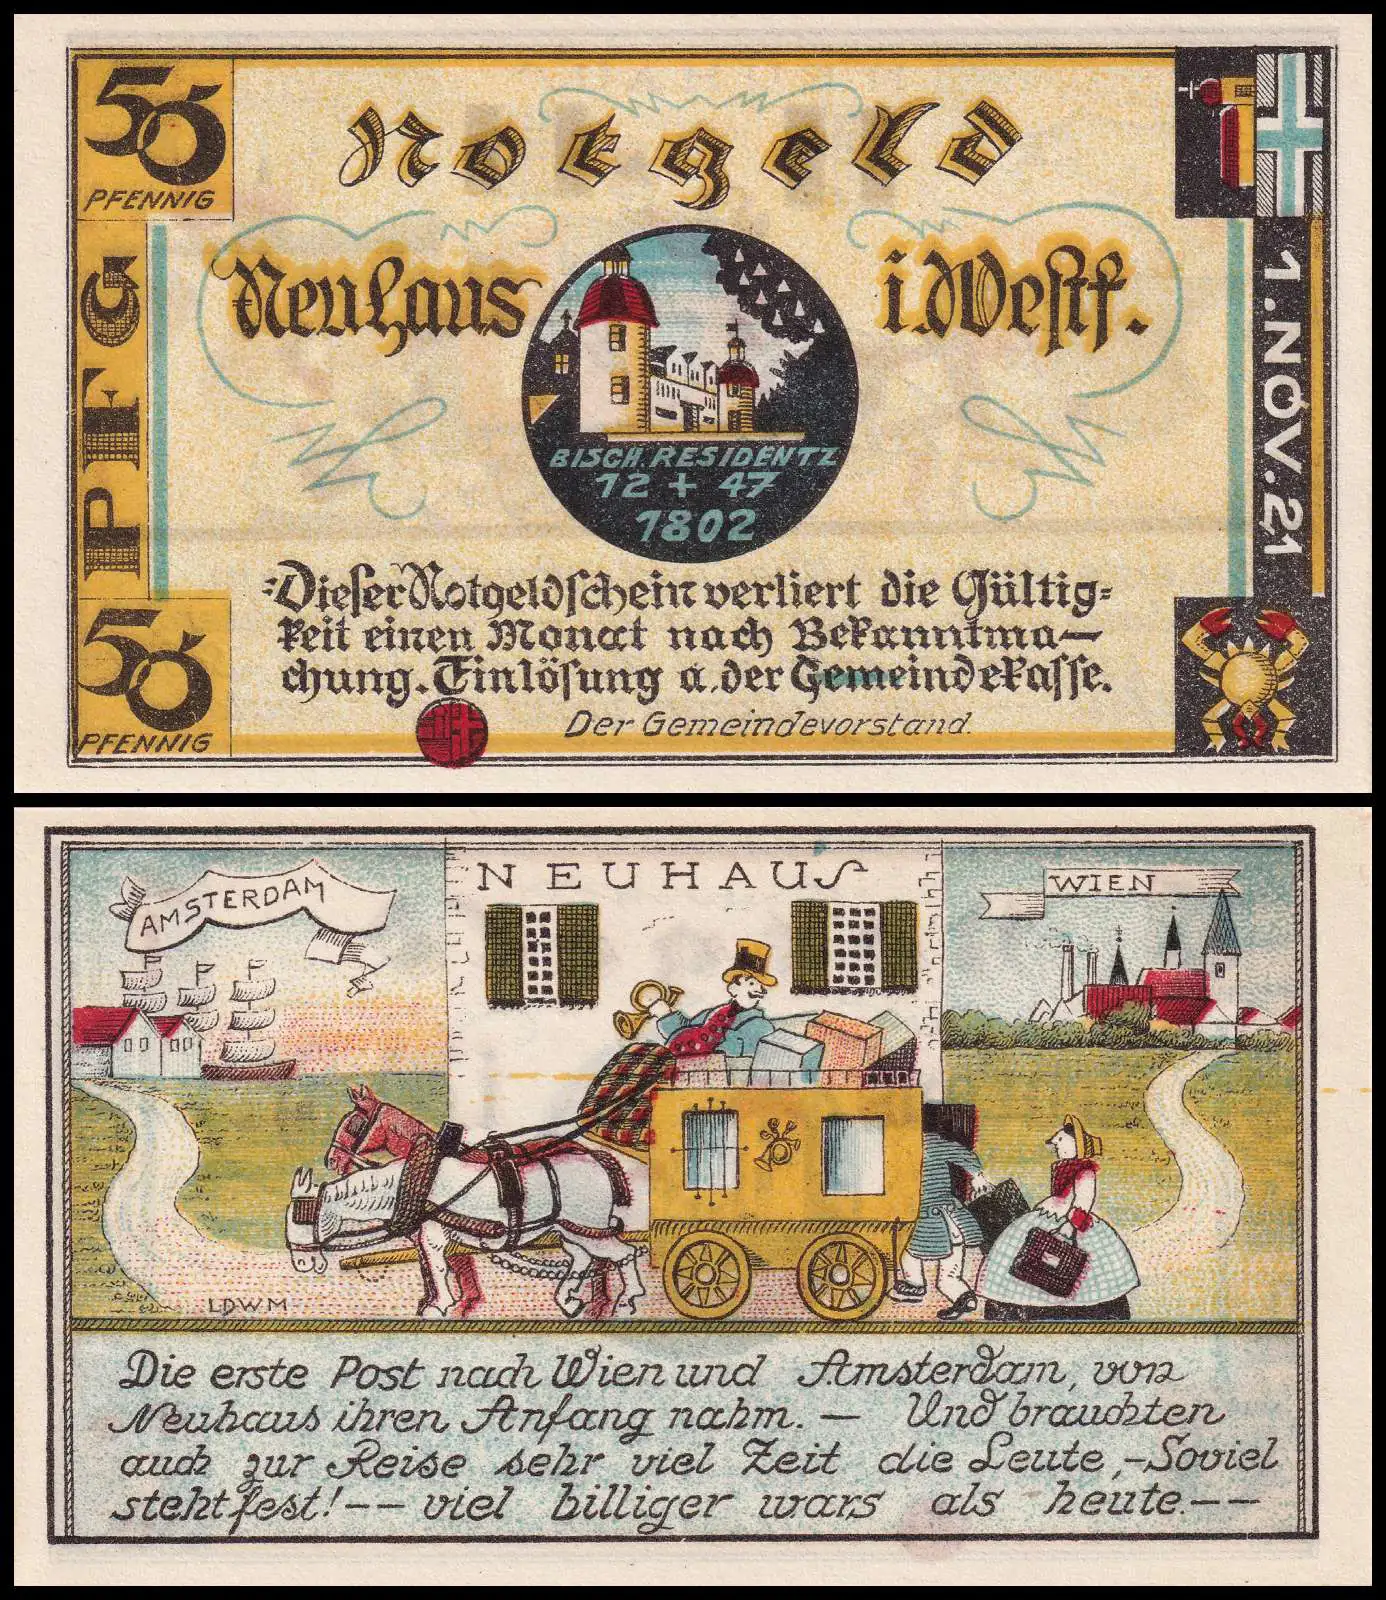 50
PFENNIG
Notgeld
Neuhaus i. Westf.
PFG
1. NOV. 21
BISCH. RESIDENTZ
12 + 47
1802
Dieser Notgeldschein verliert die Gültig=
keit einen Monat nach Bekanntma—
chung. Einlösung a. der Gemeindekasse.
Der Gemeindevorstand.
50
PFENNIG
AMSTERDAM
NEUHAUS
WIEN
LDWM
Die erste Post nach Wien und Amsterdam, von
Neuhaus ihren Anfang nahm. — Und brauchten
auch zur Reise sehr viel Zeit die Leute, - Soviel
steht fest! -- viel billiger wars als heute. --